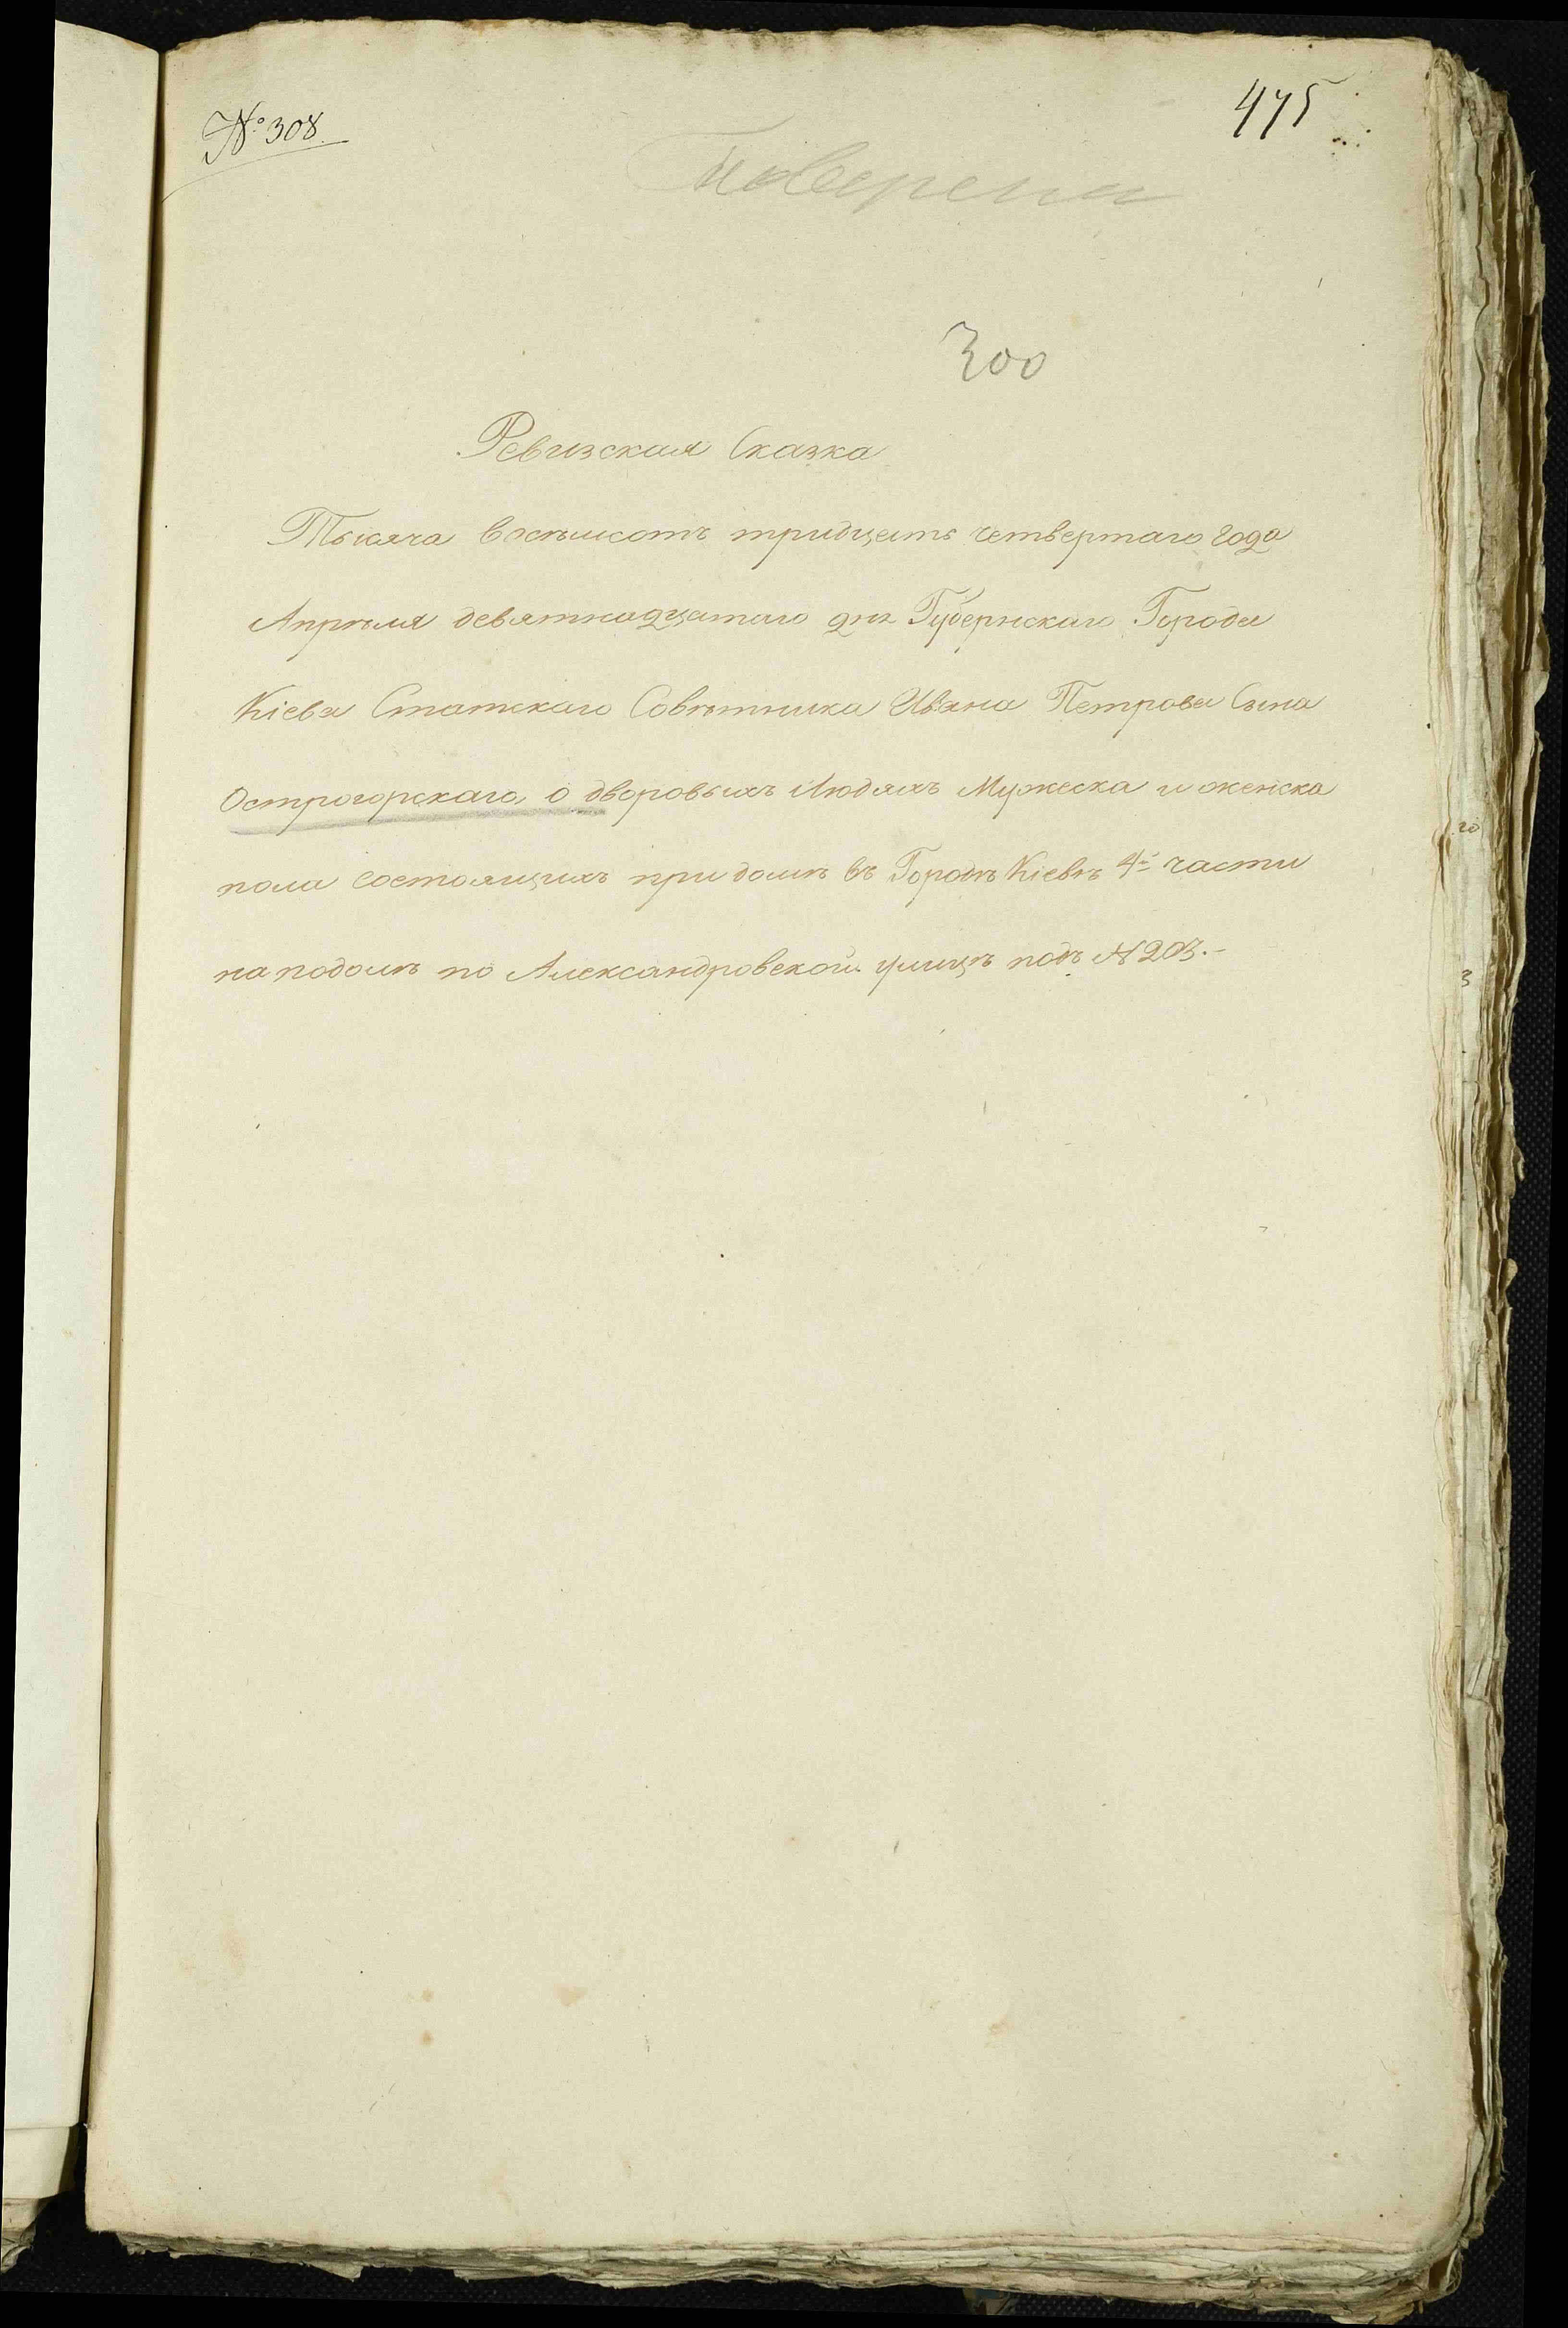 № 308.
475
поверени
300
Ревизская Сказка
Тысяча восемьсотъ тридцать четвертаго года
Апрѣля девятнадцатаго дня Губернскаго Города
Кіева Статскаго Совѣтника Ивана Петрова Сына
Острогорскаго, о дворовыхъ людяхъ Мужеска и женска
пола состоящихъ при домѣ въ Городѣ Кіевѣ 4й части
на подолѣ по Александровской улицѣ подъ № 203.-